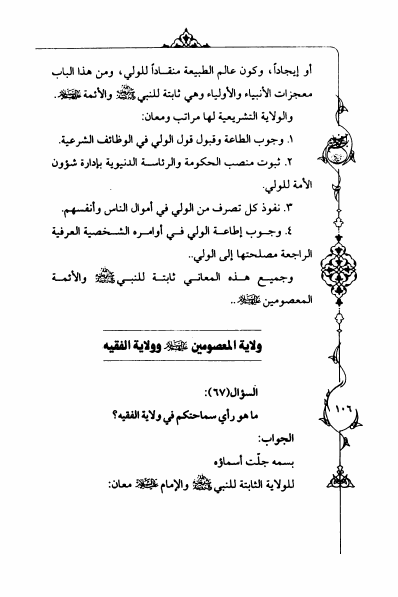 أو إيجاداً، وكون عالم الطبيعة منقاداً للولي، ومن هذا الباب
معجزات الأنبياء والأولياء وهي ثابتة للنبيﷺ والأئمة.
والولاية التشريعية لها مراتب ومعان:
١. وجوب الطاعة وقبول قول الولي في الوظائف الشرعية.
٢. ثبوت منصب الحكومة والرئاسة الدنيوية بإدارة شؤون
الأمة للولي.
٣. نفوذ كل تصرف من الولي في أموال الناس وأنفسهم.
٤. وجوب إطاعة الولي في أوامره الشخصية العرفية
الراجعة مصلحتها إلى الولي..
وجميع هذه المعاني ثابتة للنبيﷺ والأئمة
المعصومين..
ولاية المعصومين وولاية الفقيه
السؤال(٦٧):
ما هو رأي سماحتكم في ولاية الفقيه؟
١٠٦
الجواب:
بسمه جلّت أسماؤه
للولاية الثابتة للنبيﷺ والإمام معان: